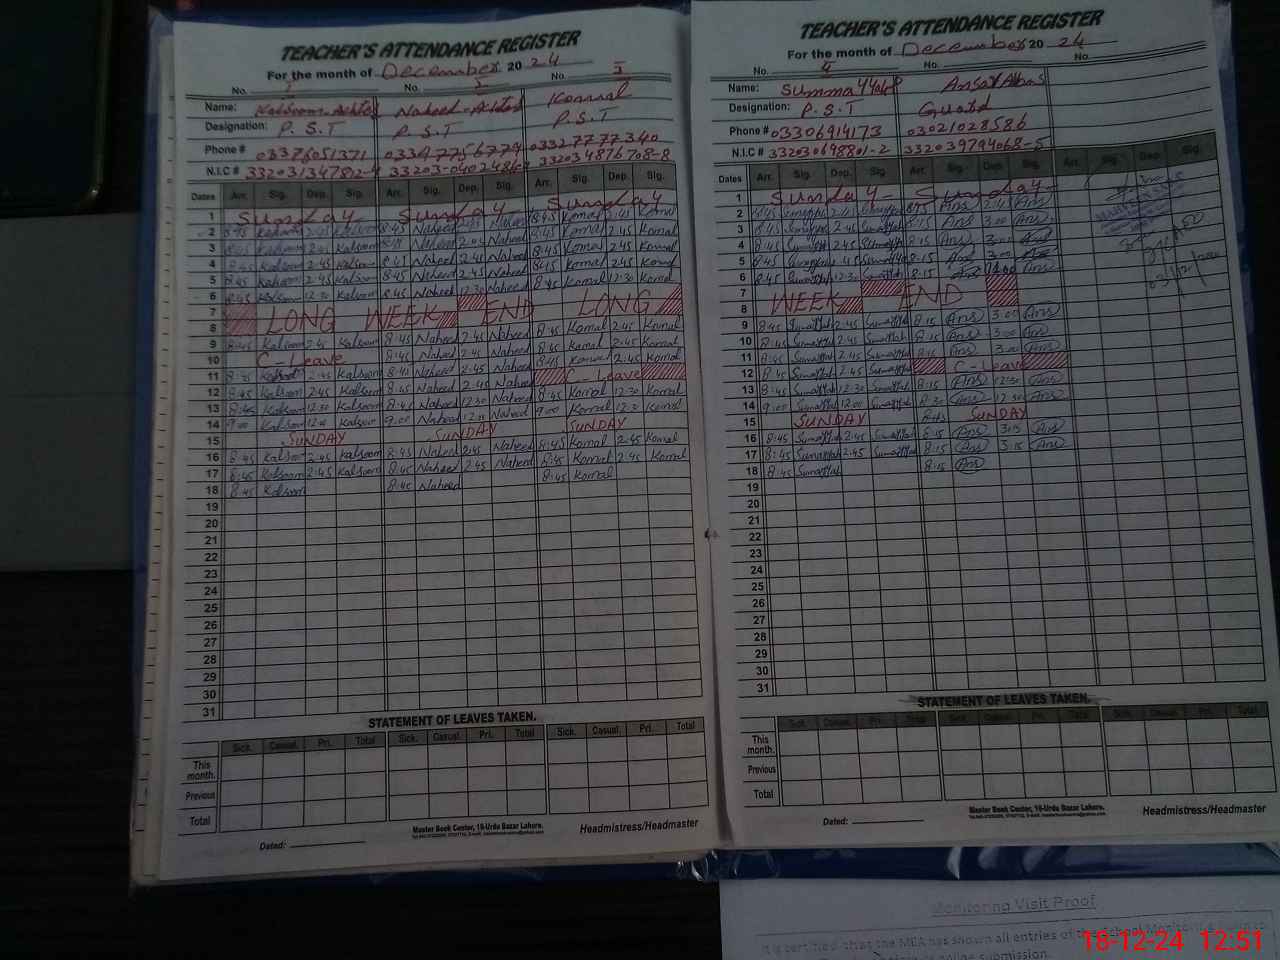 TEACHER'S ATTENDANCE REGISTER
For the month of December 2024
No. 1 No. 2 No. 3
Name: Kalsoom Akhtar Naheed Akhtar Komal
Designation: P.S.T P.S.T P.S.T
Phone #
N.I.C #
Dates Arr. Sig. Dep. Sig. Arr. Sig. Dep. Sig. Arr. Sig. Dep. Sig.
1 Sunday Sunday Sunday
2 8:45 Kalsoom 2:45 Kalsoom 8:45 Naheed 2:45 Naheed 8:45 Komal 2:45 Komal
3 8:45 Kalsoom 2:45 Kalsoom Naheed 2:45 Naheed 8:45 Komal 2:45 Komal
4 8:45 Kalsoom 2:45 Kalsoom 8:45 Naheed 2:45 Naheed 8:45 Komal 2:45 Komal
5 8:45 Kalsoom 2:45 Kalsoom 8:45 Naheed 2:45 Naheed 8:45 Komal 2:45 Komal
6 8:45 Kalsoom 12:30 Kalsoom 8:45 Naheed 12:30 Naheed 8:45 Komal 12:30 Komal
7 LONG WEEK END LONG
8
9 8:45 Kalsoom 2:45 Kalsoom 8:45 Naheed 2:45 Naheed 8:45 Komal 2:45 Komal
10 C-Leave 8:45 Naheed 2:45 Naheed 8:45 Komal 2:45 Komal
11 8:45 Kalsoom 2:45 Kalsoom 8:45 Naheed 2:45 Naheed 8:45 Komal 2:45 Komal
12 8:45 Kalsoom 2:45 Kalsoom 8:45 Naheed 2:45 Naheed C-Leave
13 8:45 Kalsoom 12:30 Kalsoom 8:45 Naheed 12:30 Naheed 8:45 Komal 12:30 Komal
14 9:00 Kalsoom 12:00 Kalsoom 9:00 Naheed Naheed 9:00 Komal Komal
15 SUNDAY SUNDAY SUNDAY
16 8:45 Kalsoom 2:45 Kalsoom 8:45 Naheed 2:45 Naheed 8:45 Komal 2:45 Komal
17 8:45 Kalsoom 2:45 Kalsoom 8:45 Naheed 2:45 Naheed 8:45 Komal 2:45 Komal
18 8:45 Kalsoom 8:45 Naheed 8:45 Komal
19
20
21
22
23
24
25
26
27
28
29
30
31
STATEMENT OF LEAVES TAKEN.
Sick. Casual. Pri. Total Sick. Casual. Pri. Total Sick. Casual. Pri. Total
This month.
Previous
Total
Master Book Center, 16-Urdu Bazar Lahore.
Dated: Headmistress/Headmaster
TEACHER'S ATTENDANCE REGISTER
For the month of December 2024
No. 4 No. No.
Name: Ansar Abas
Designation: P.S.T Guard
Phone # 03306914173 03021028586
N.I.C # 332030698801-2 332039794068-5
Dates Arr. Sig. Dep. Sig. Arr. Sig. Dep. Sig. Arr. Sig. Dep. Sig.
1 Sunday Sunday
2 8:45 2:45 8:15 Ans 2:45 Ans
3 8:45 2:45 8:15 Ans 3:00 Ans
4 8:45 2:45 8:15 Ans 3:00 Ans
5 8:45 8:15 Ans 3:00 Ans
6 8:45 12:30 8:15 Ans Ans
7 WEEK END
8
9 8:45 Sumayyah 2:45 Sumayyah 8:15 Ans 3:00 Ans
10 8:45 Sumayyah 2:45 Sumayyah 8:15 Ans 3:00 Ans
11 8:45 Sumayyah 2:45 Sumayyah 8:15 Ans 3:00 Ans
12 8:45 Sumayyah 2:45 Sumayyah C-Leave
13 8:45 Sumayyah 12:30 Sumayyah 8:15 Ans 12:30 Ans
14 9:00 Sumayyah 12:00 Sumayyah 8:30 Ans 12:30 Ans
15 SUNDAY SUNDAY
16 8:45 Sumayyah 2:45 Sumayyah 8:15 Ans 3:15 Ans
17 8:45 Sumayyah 2:45 Sumayyah 8:15 Ans 3:15 Ans
18 8:45 Sumayyah 8:15 Ans
19
20
21
22
23
24
25
26
27
28
29
30
31
STATEMENT OF LEAVES TAKEN.
Sick. Casual. Pri. Total Sick. Casual. Pri. Total Sick. Casual. Pri. Total
This month.
Previous
Total
Master Book Center, 16-Urdu Bazar Lahore.
Dated: Headmistress/Headmaster
Monitoring Visit Proof
It is certified that the MEA has shown all entries of the School
online submission.
18-12-24 12:51